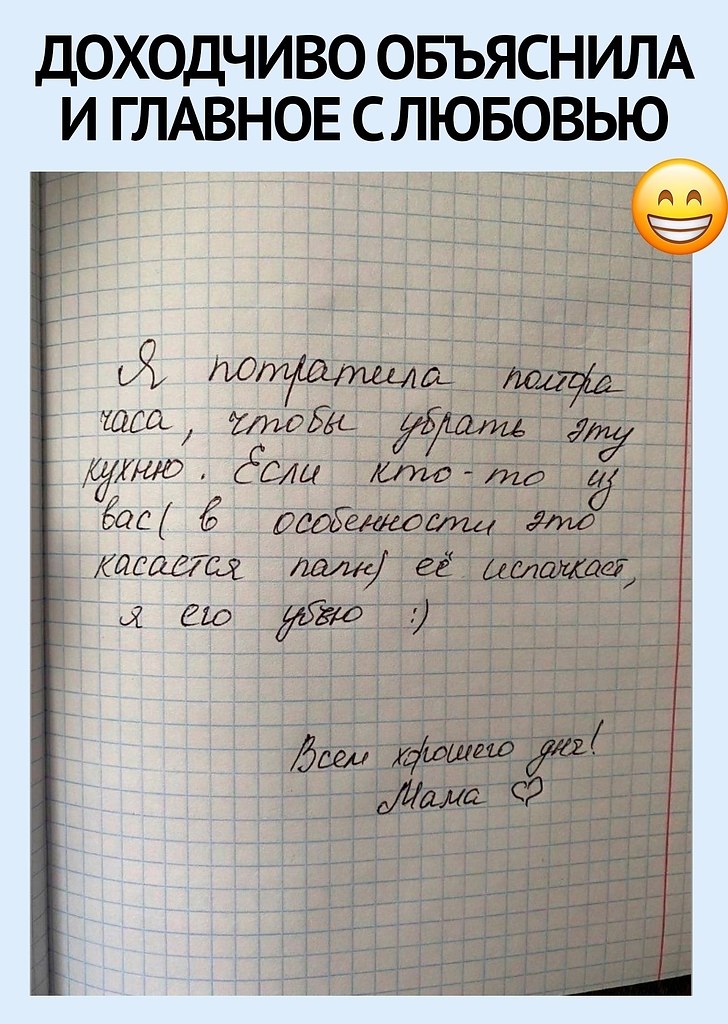 ДОХОДЧИВО ОБЪЯСНИЛА
И ГЛАВНОЕ С ЛЮБОВЬЮ
Я потратила полтора
часа, чтобы убрать эту
кухню. Если кто-то из
вас( в особенности это
касается папы) её испачкает,
я его убью :)
Всем хорошего дня!
Мама ♡